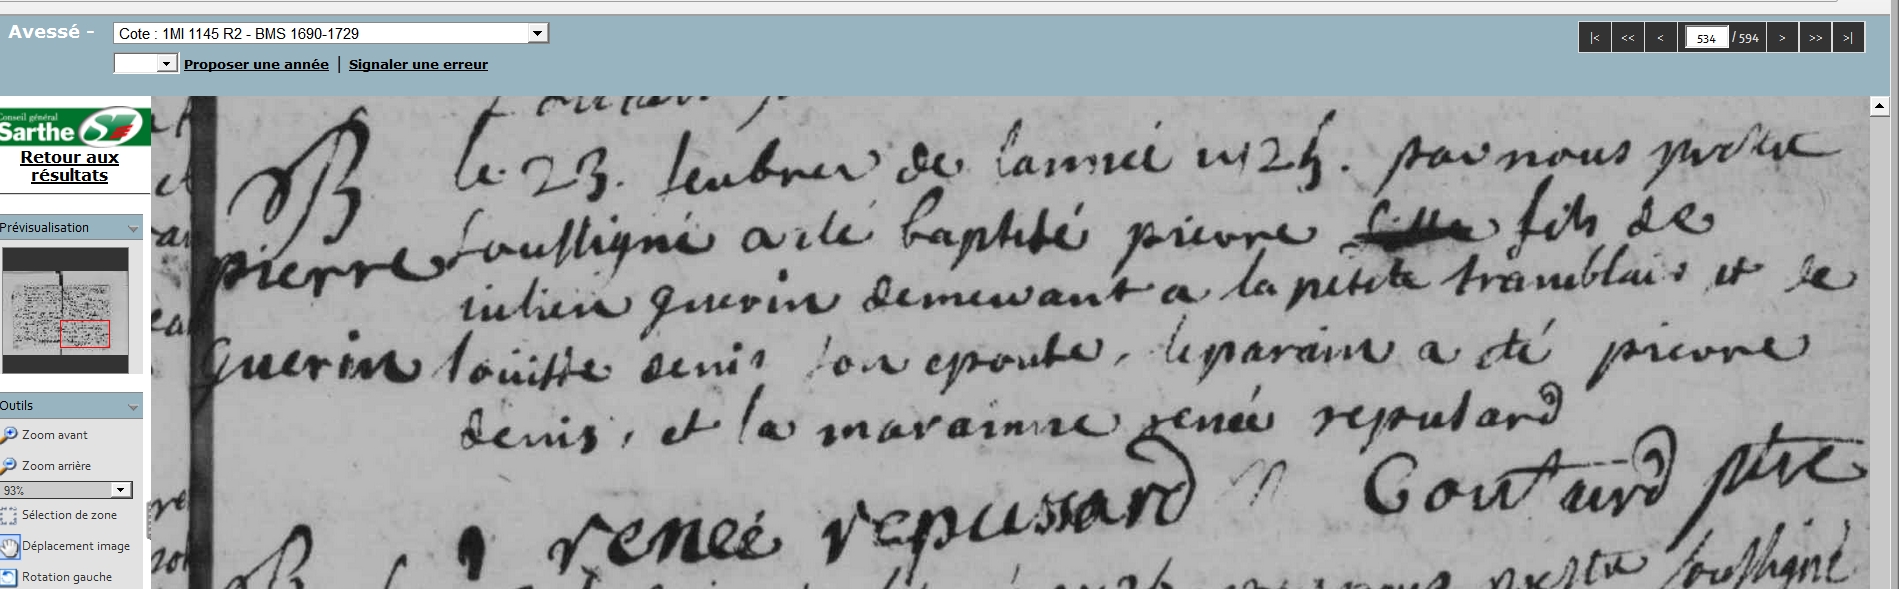 Avessé -
Cote : 1MI 1145 R2 - BMS 1690-1729
|< << < 534 / 594 > >> >|
Proposer une année | Signaler une erreur
Conseil général
Sarthe
Retour aux
résultats
Prévisualisation
Outils
Zoom avant
Zoom arrière
93%
Sélection de zone
Déplacement image
Rotation gauche
B
pierre
guerin
le 23. de lannée par nous
soussigné a esté baptisé pierre fils de
iulien guerin demeurant a la petite tramblais et de
louisse denis son epouse, le parain a eté pierre
denis, et la maraine renée repusard
renée repussard
ptre
B
soussigné